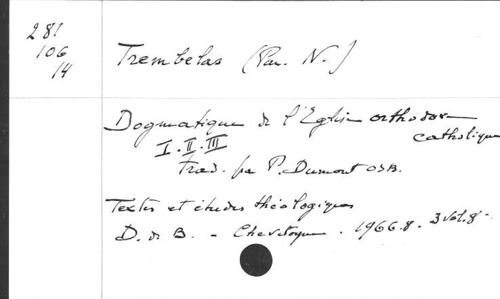 281
106
14
Trembelas (Pan. N.)
Dogmatique de l'Eglise orthodoxe
catholique
I. II. III
Trad. par P. Dumont OSB.
Textes et études théologiques
D. de B. - Chevetogne. 1966.8. 3 vol. 8°-